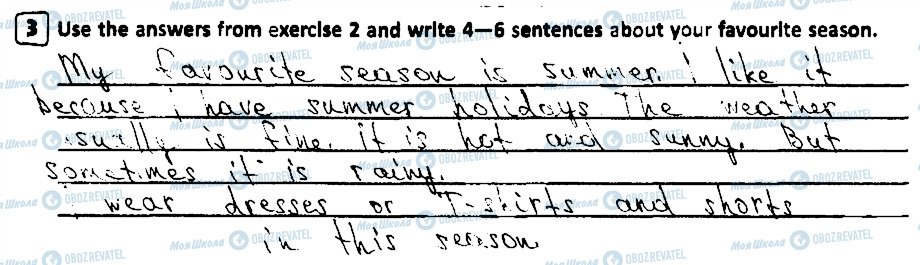 3 Use the answers from exercise 2 and write 4—6 sentences about your favourite season.
My favourite season is summer. I like it
because i have summer holidays The weather
usually is fine. it is hot and sunny. But
sometimes it is rainy.
I wear dresses or T-shirts and shorts
in this season